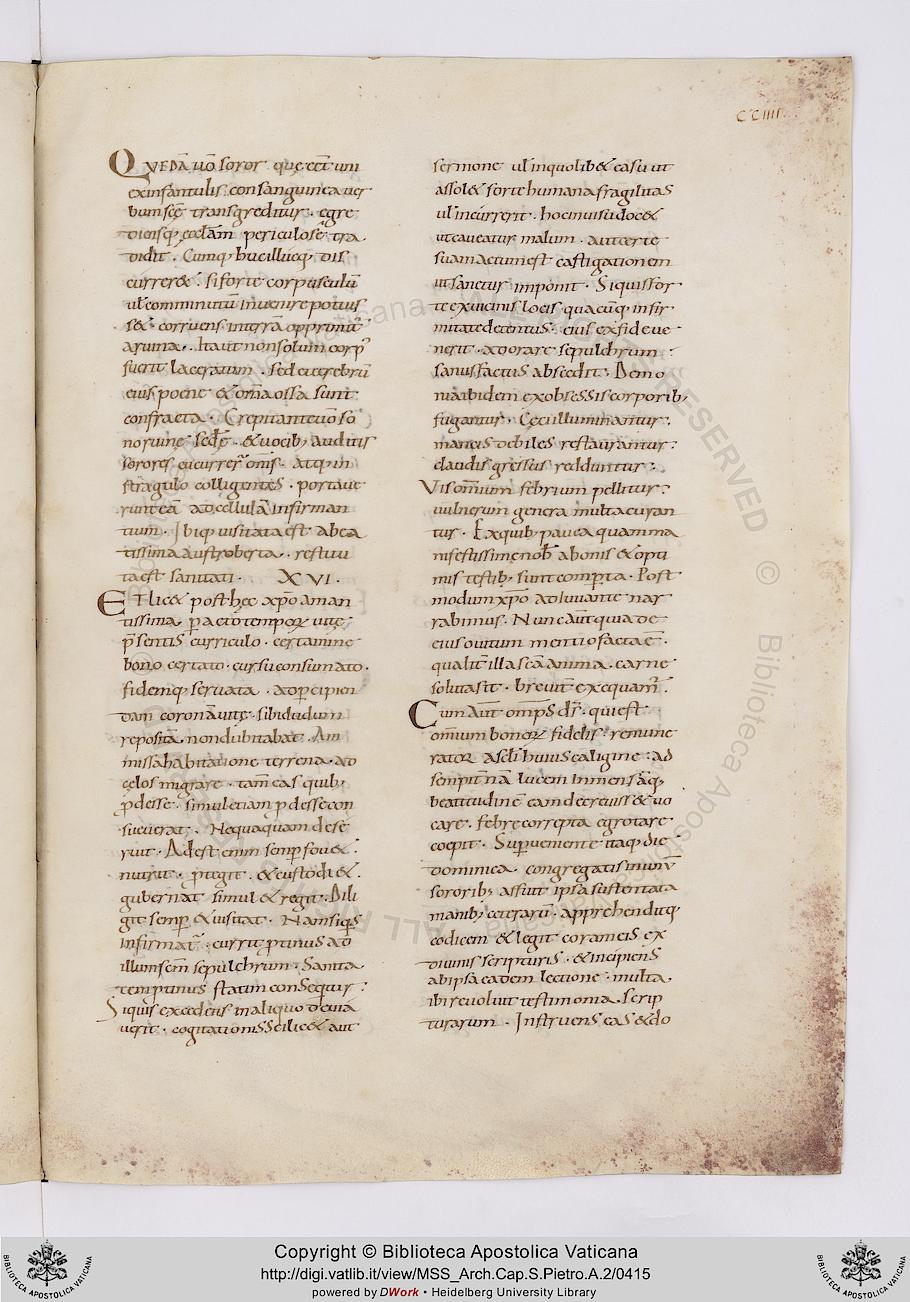 CCIIII
QVEDĀ uō soror quę eēt uni
ex infantulis consanguinea uer
bum scę transgreditur. egre
diensq; ecclām periculose tra
didit. Cumq; huc illucq; dis
curreret. si forte corpusculū
ul comminutū inuenire potuis
set. corruens interrā opprimit̄
a ruina. Ita ut non solum corp̄
fuerit laceratum. sed cerebrū
eius poene & om̄a ossa sunt
confracta. Crepitante uō so
no ruinę. & uocib; auditis
sorores cucurrer̄ om̄s. atq; in
stragulo colligentes. portaue
runt eā ad cellulā infirman
tium. Ibiq; uisitata est ab ea
tissima austroberta. restitu
ta est sanitati. XVI.
ET licet post hęc xp̄o aman
tissima peracto temporꝝ uitę
p̄sentis curriculo. certamine
bono certato. cursu consumato.
fidemq; seruata. ad percipien
dam coronā uitę. sibi dudum
reposita. non dubitabat. Am
missa habitatione terrena. ad
cęlos migrare. tam̄ eas quib;
p̄desse. simul etiam p̄desse con
sueuerat. Nequaquam dese
ruit. Adest enim semper fouet.
nutrit. p̄tegit. & custodi&.
gubernat simul & regit. Dili
git semp & uisitat. Nam siq̄s
infirmat̄. currit p̄tinus ad
illum scm̄ sepulchrum. Sanita
tem ptinus statim consequit̄.
Si quis excedens in aliquo deuia
uerit. cogitationis scilicet aut
sermone ul in quolibet casu ut
assolet forte humana fragilitas
ul incurrerit. hoc in uisu docet
ut caueatur malum. aut certe
suam actum est castigationem
ut sanetur imponit. Si quis for
te ex uicinis locis quacūq; infir
mitate detentus. eius ex fide ue
nerit. adorare sepulchrum.
sanus factus abscedit. Demo
nia ibidem ex obsessis corporib;
fugantur. Ceci illuminantur.
mancis debiles restaurantur.
claudis gressus redduntur.
Vis omnium febrium pellitur.
uulnerum genera multa curan
tur. Ex quib; pauca quam ma
nifestissime nob̄ a bonis & opti
mis testib; sunt comperta. Post
modum xp̄o adiuuante nar
rabimus. Nunc aūt quia de
eius obitum mentio facta ē.
qualit̄ illa scā anima. carne
soluta sit. breuit̄ exequam̄.
Cum aūt omps ds̄. qui est
omium bonorꝝ fidelis remune
rator a scli huius caligine. ad
sempit̄nā lucem inmensāq;
beatitudinē eam decreuisset uo
care. febre correpta egrotare
coepit. Superueniente itaq; die
dominica. congregatis in unū
sororib; assiut ipsa sustentata
manib; ceterarū. apprehenditq;
codicem & legit coram eis ex
diuinis scripturis. & incipiens
ab ipsa eadem lectione. multa
ibi reuoluit testimonia scrip
turarum. Instruens eas & do
Copyright © Biblioteca Apostolica Vaticana
http://digi.vatlib.it/view/MSS_Arch.Cap.S.Pietro.A.2/0415
powered by DWork • Heidelberg University Library